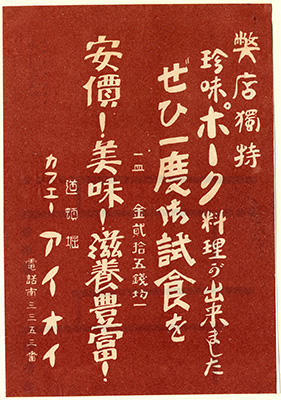 弊店獨特
珍味ポーク料理が出来ました
ぜひ一度御試食を
一皿 金貳拾五錢均一
安價!美味!滋養豊富!
道頓堀
カフエーアイオイ
電話南三三五三番